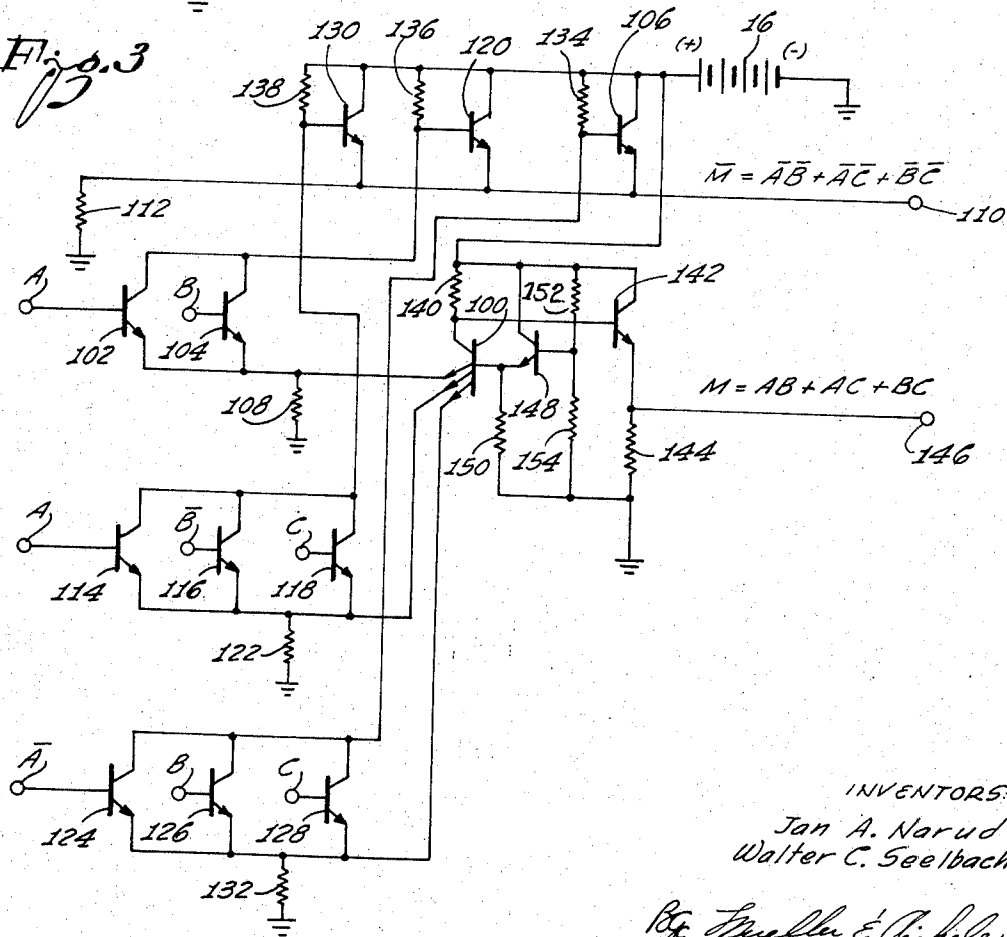 Fig. 3
130 136 120 134 106 (+) 16 (-)
138
M̅ = A̅B̅ + A̅C̅ + B̅C̅
112 110
A B 140 100 152 142
102 104
M = AB + AC + BC
108 148
150 154 144 146
A B̅ C
114 116 118
122
A̅ B C
124 126 128
132
INVENTORS
Jan A. Narud
Walter C. Seelbach
By Mueller &